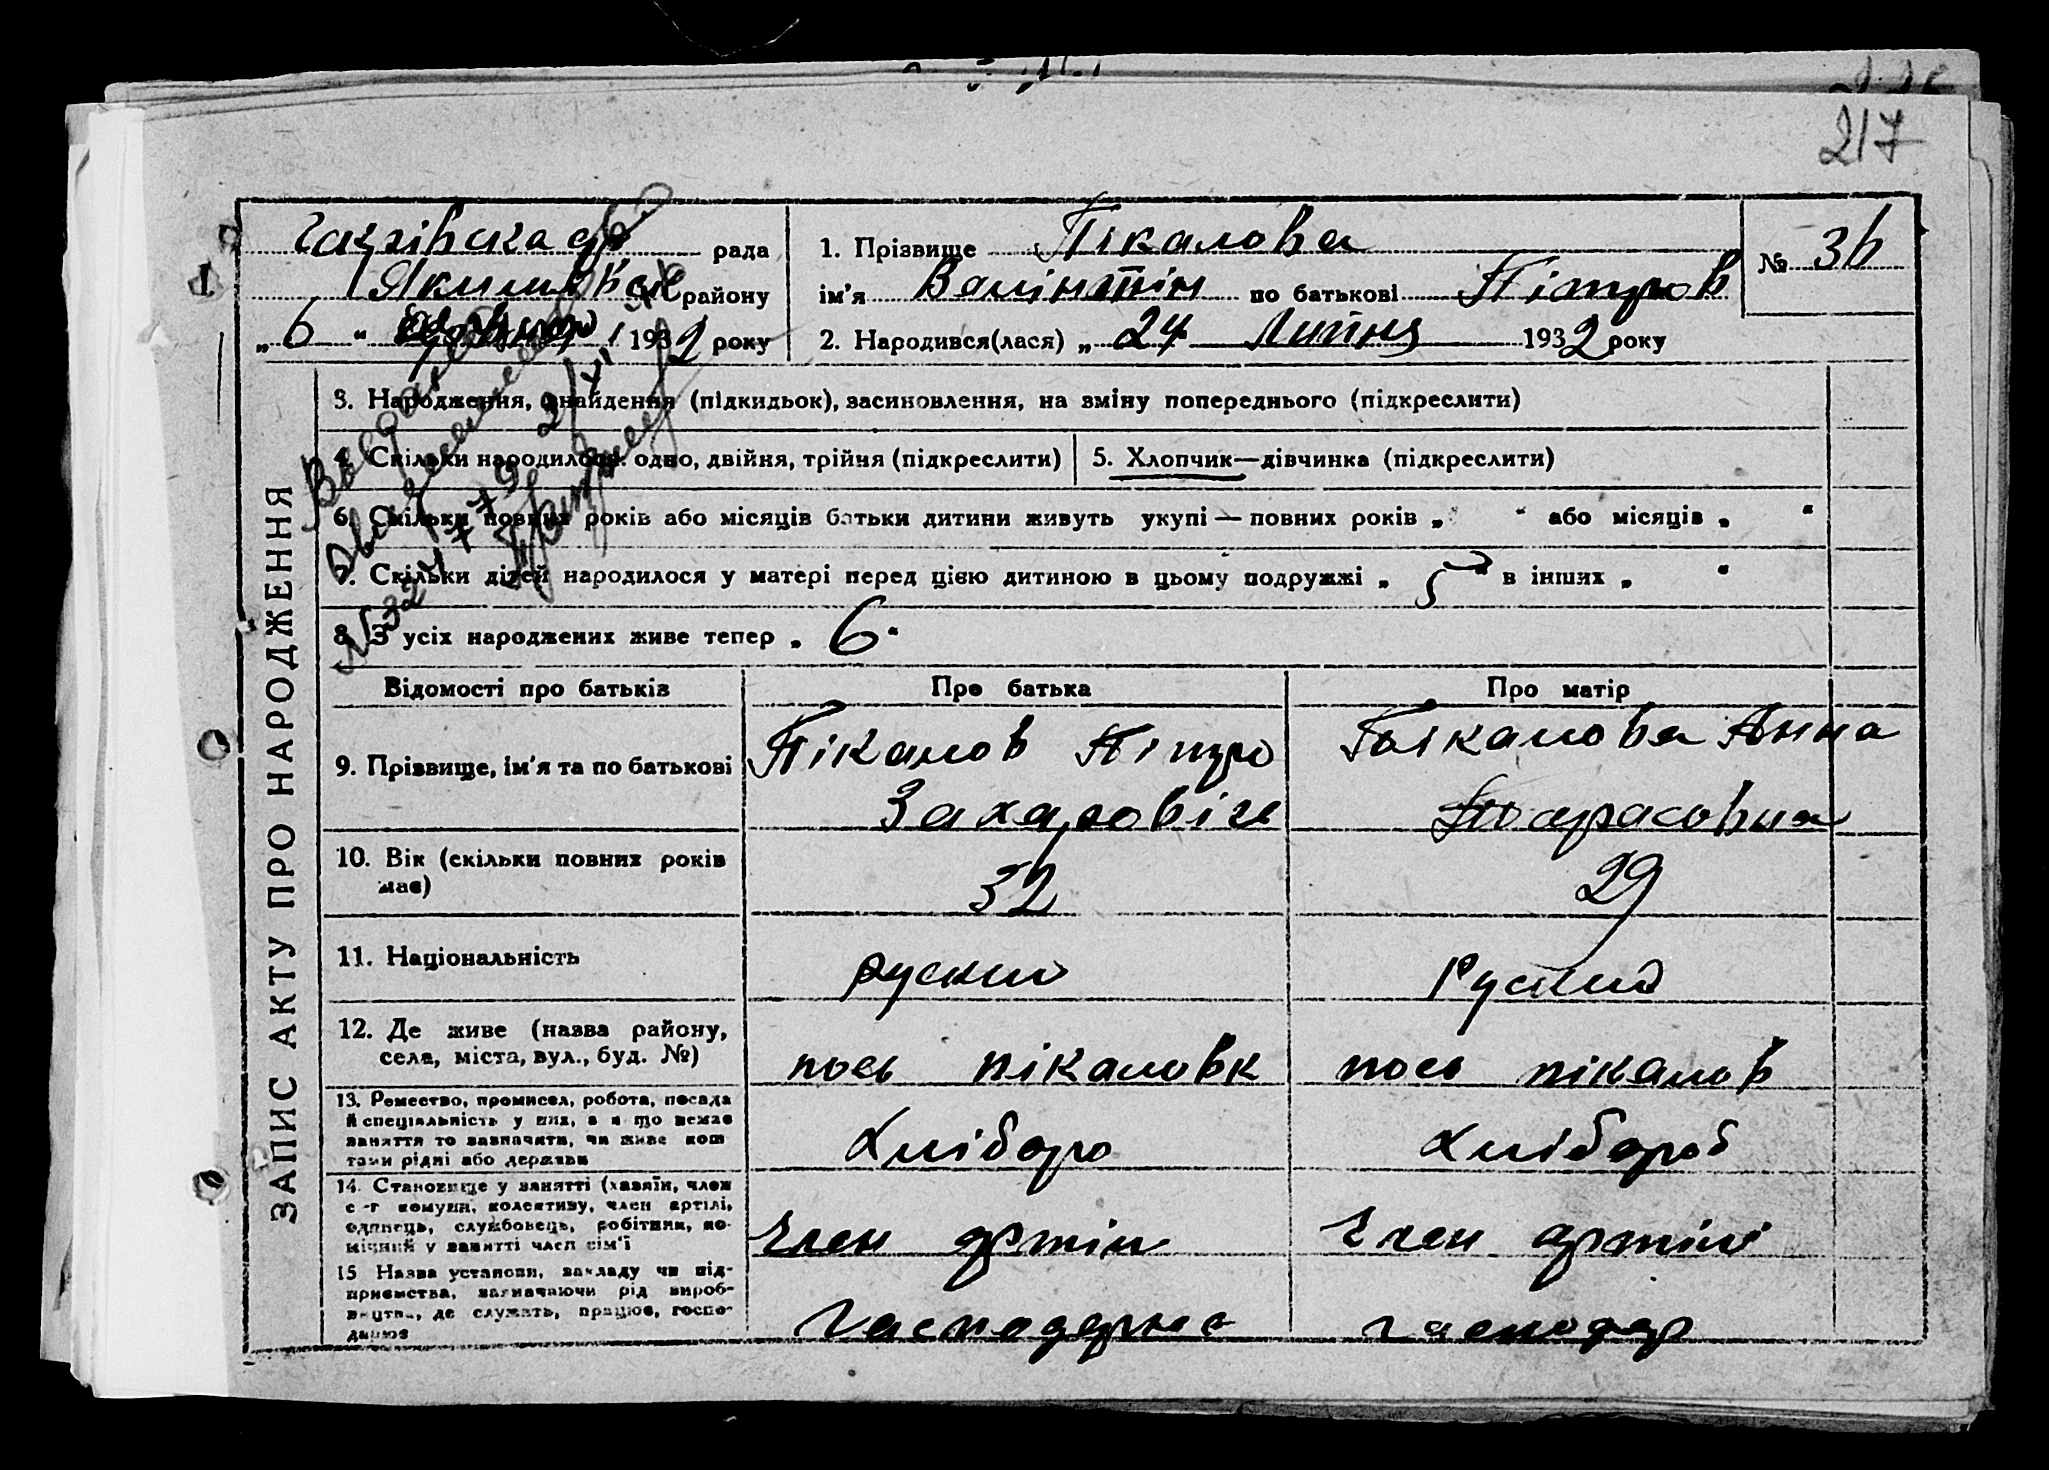 217
рада
району
„ 6 “ 1932 року
1. Прізвище Пікалова
ім'я Валінтін по батькові Пітров
№ 36
2. Народився(лася) „ 24 Липня 1932 року
ЗАПИС АКТУ ПРО НАРОДЖЕННЯ
3. Народження, знайдення (підкидьок), засиновлення, на зміну попереднього (підкреслити)
4. Скільки народилось: одно, двійня, трійня (підкреслити)
5. Хлопчик—дівчинка (підкреслити)
6. Скільки повних років або місяців батьки дитини живуть укупі — повних років „ “ або місяців „ “
7. Скільки дітей народилося у матері перед цією дитиною в цьому подружжі „ 5 “ в інших „ “
8. З усіх народжених живе тепер „ 6 “
Відомості про батьків
Про батька
Про матір
9. Прізвище, ім'я та по батькові
Пікалов Пітро
Захаровіч
Пікалова Анна
Тарасовна
10. Вік (скільки повних років
має)
32
29
11. Національність
руский
Руский
12. Де живе (назва району,
села, міста, вул., буд. №)
пось пікаловк
пось пікалов
13. Ремество, промисел, робота, посада
й спеціяльність у них, а якщо немає
заняття то зазначити, чи живе кош
тами рідні або держави
Хліборо
Хлібороб
14. Становище у занятті (хазяїн, член
с-г комуни, колективу, член артілі,
одинець, службовець, робітник, по-
мічний у занятті член сім'ї
Член артіли
Член артілі
15 Назва установи, закладу чи під-
приємства, зазначаючи рід вироб-
ництва, де служать, працює, госпо-
дарює
Гасподарює
гасподар